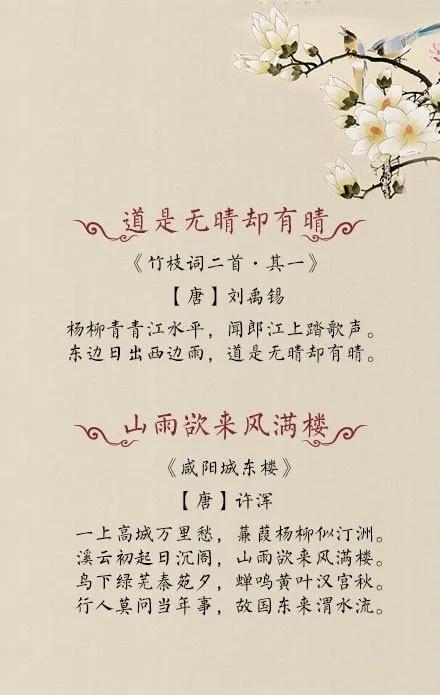 道是无晴却有晴
《竹枝词二首·其一》
【唐】刘禹锡
杨柳青青江水平，闻郎江上踏歌声。
东边日出西边雨，道是无晴却有晴。
山雨欲来风满楼
《咸阳城东楼》
【唐】许浑
一上高城万里愁，蒹葭杨柳似汀洲。
溪云初起日沉阁，山雨欲来风满楼。
鸟下绿芜秦苑夕，蝉鸣黄叶汉宫秋。
行人莫问当年事，故国东来渭水流。